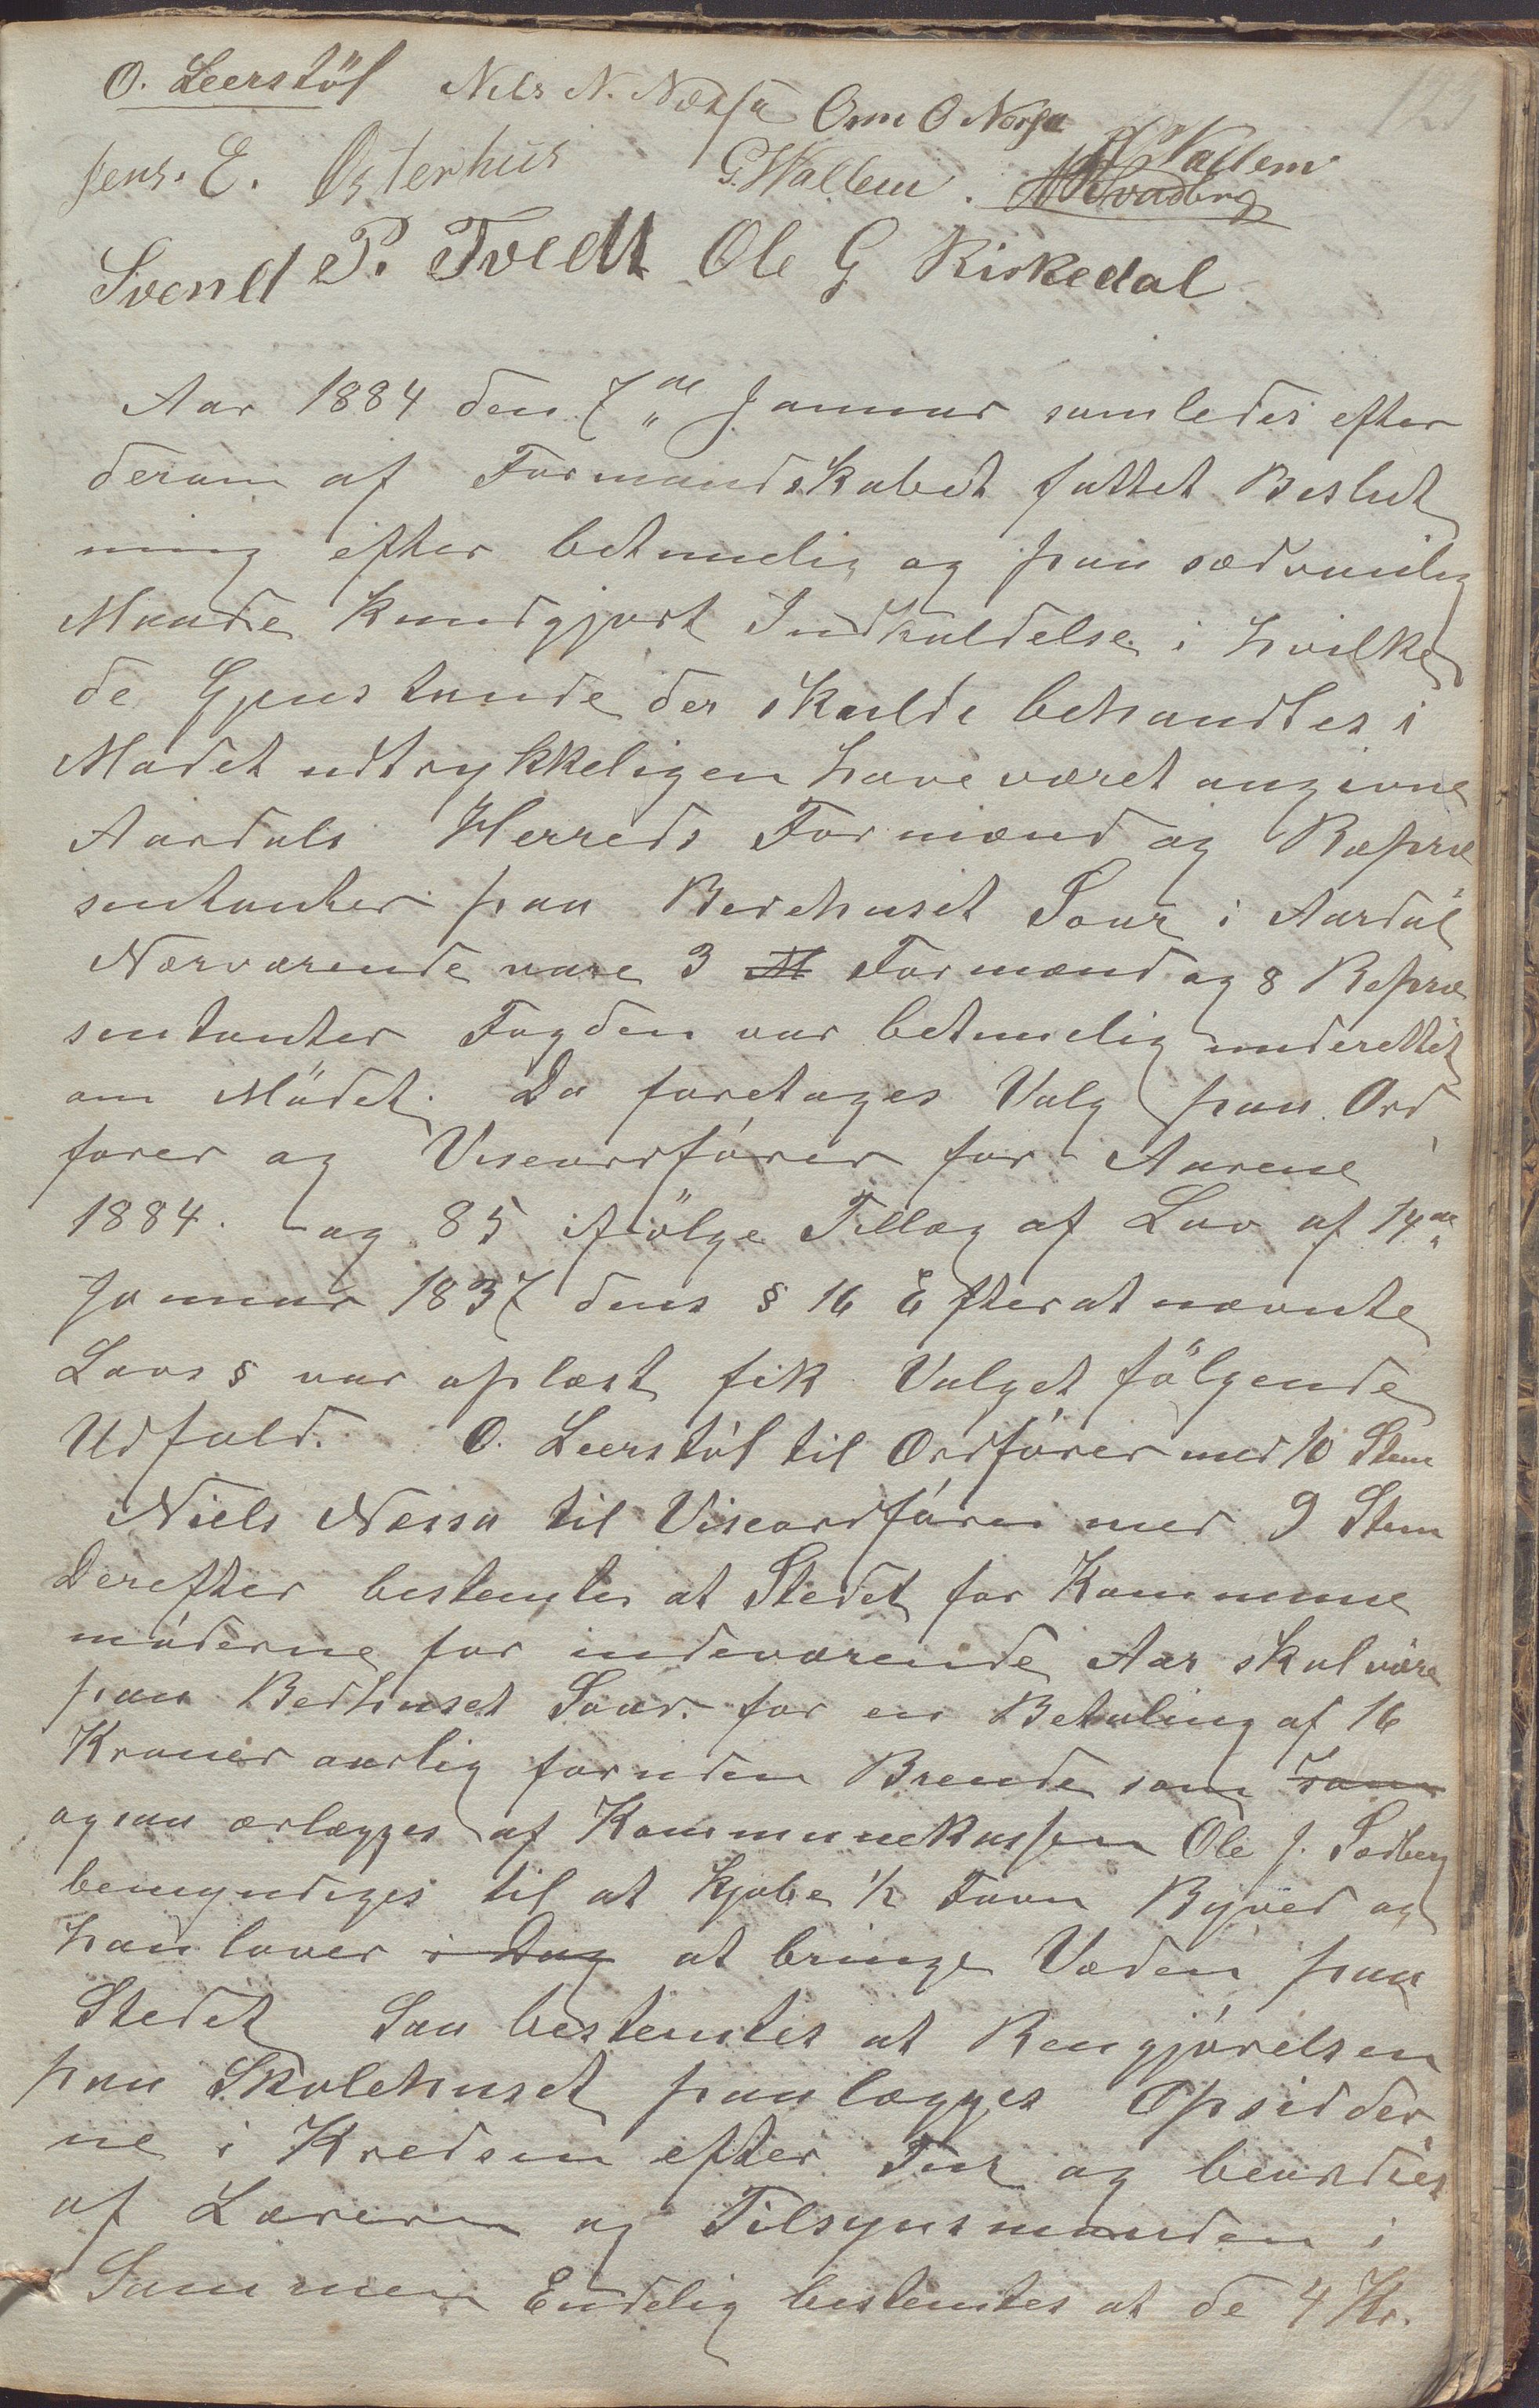 O. Leerstöl Nils N. Nessa Orm O Norse
Jens. E. Østerhus G. Wallem. Wallem
Svend P. Tvedt Ole G Riskedal
Aar 1884 den 7de Januar samledes efter
derom af Formandskabet fattet Beslut
ning efter betimelig og paa sædvanlig
Maade kundgjort Indkaldelse i hvilke
de Gjenstande der skulde behandles i
Mødet udtrykkeligen have været angivne
Aardals Herreds Formænd og Repræ
sentanter paa Bedehuset Soar i Aardal
Nærværende vare 3 M Formænd og 8 Repræ
sentanter Fogden var betimelig underettet
om Mödet. Da foretages Valg paa Ord
fører og Viseordfører for Aarene
1884. og 85 ifölge Tillæg af Lov af 14de
Januar 1837 dens § 16 Efterat nævnte
Lovs § var oplæst fik Valget fölgende
Udfald. O. Leerstöl til Ordfører med 10 Stem
Niels Nessa til Viseordfører med 9 Stem
Derefter bestemtes at Stedet for Kommune
møderne for indeværende Aar skal være
paa Bedhuset Soar. for en Betaling af 16
Kroner aarlig foruden Brende som som
ogsaa erlægges af Kommunekassen Ole J. Sedberg
bemyndiges til at kjøbe 1/2 Favn Byved og
han lover i Dag at bringe Veden paa
Stedet Saa bestemtes at Rengjørelsen
paa Skolehuset paalægges Opsidder
ne i Kredsen efter Tur og beordres
af Læreren og Tilsynsmanden i
Sammen Endelig bestemtes at de 4 Kr.